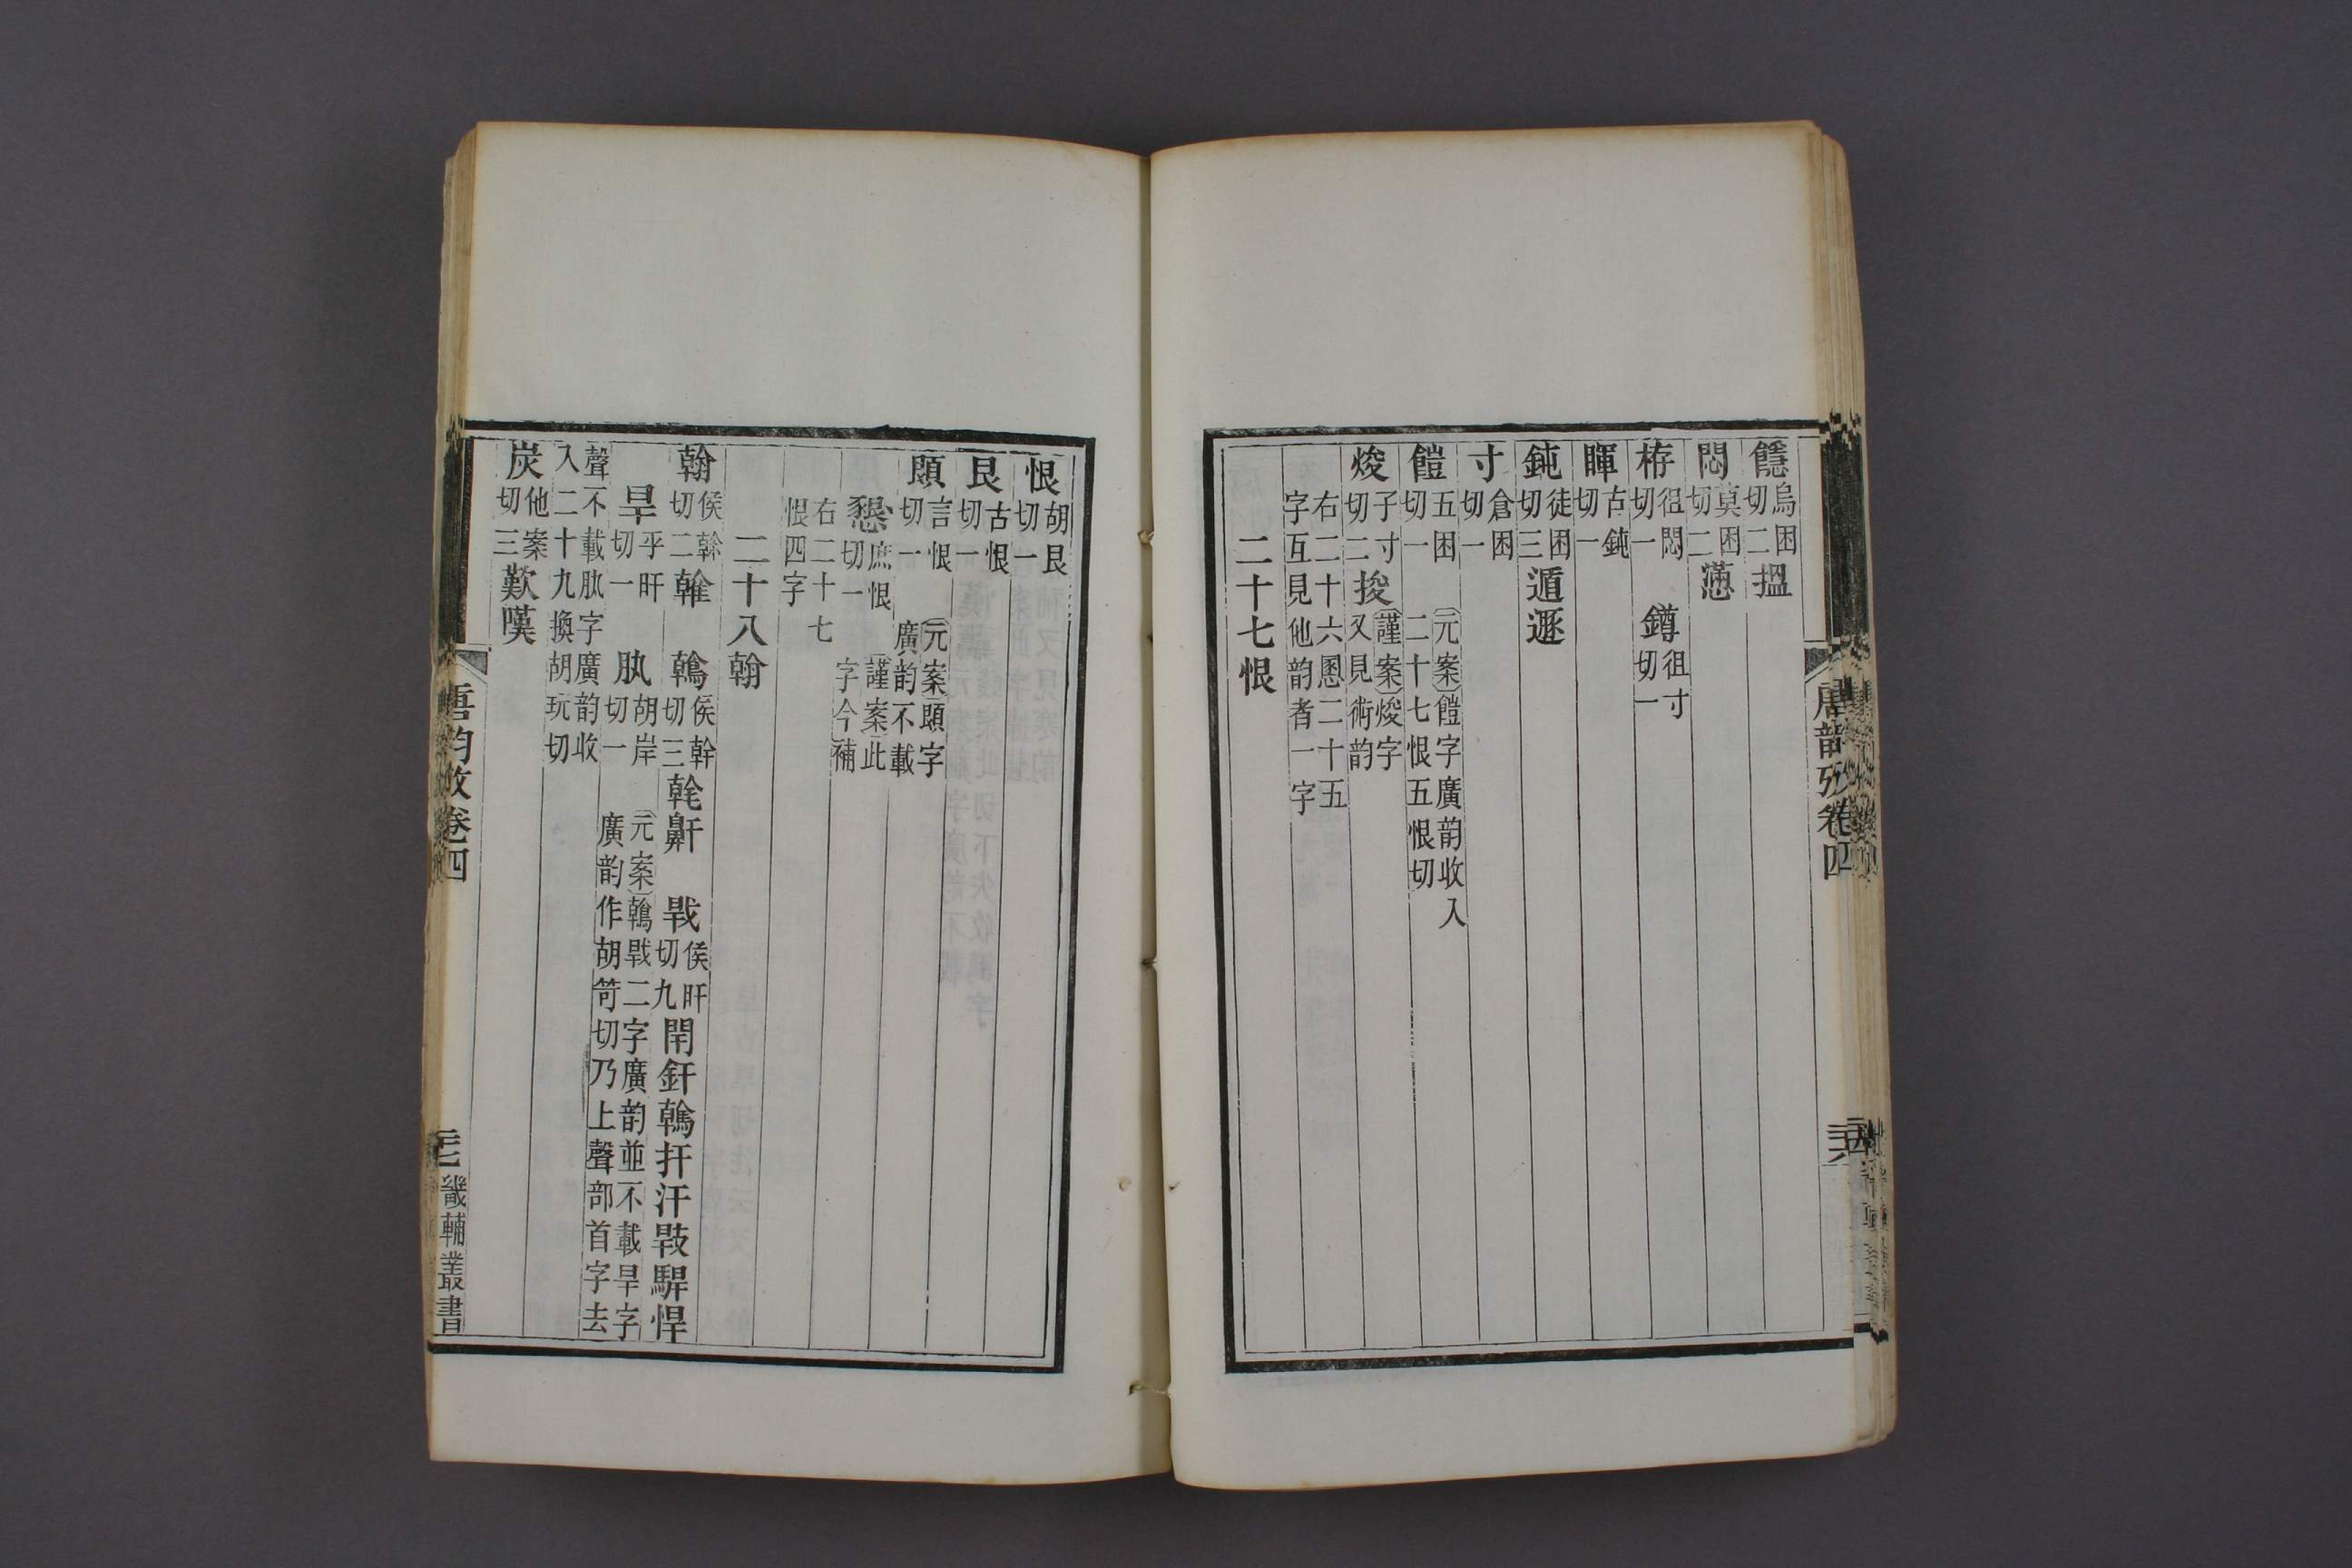 㥯烏困切二搵
悶莫困切二懣
栫徂悶切一　鐏徂寸切一
睴古鈍切一
鈍徒困切三遁遯
寸倉困切一
䭓五困切一　元案䭓字廣韵收入二十七恨五恨切
焌子寸切二捘謹案焌字又見術韵
右二十六慁二十五字互見他韵者一字
二十七恨
唐韵攷卷四
恨胡艮切一
艮古恨切一
頣言恨切一　元案頣字廣韵不載
懇康恨切一　謹案此字今補
右二十七恨四字
二十八翰
翰侯幹切二雗　鶾侯幹切三乾鼾　戰侯旰切九閈釬鶾扞汗𢾍駻悍
旱乎旰切一　肒胡岸切一　元案鶾戰二字廣韵並不載旱字廣韵作胡笴切乃上聲部首字去
聲不載肒字廣韵收入二十九換胡玩切
炭他案切三歎嘆
唐韵攷卷四
畿輔叢書